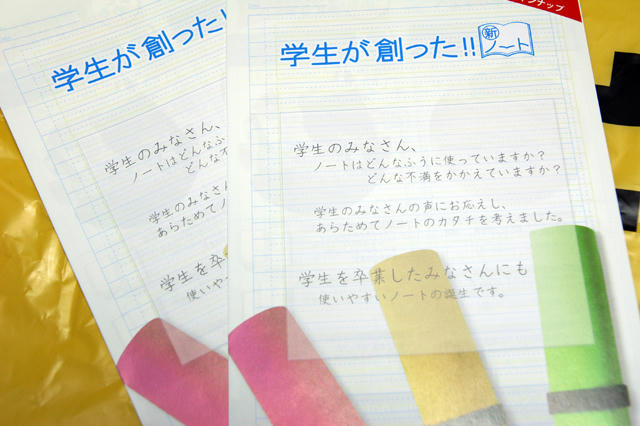 学生が創った!!
学生のみなさん、
ノートはどんなふ
どんな不
学生のみなさん
あらためてノ
学生を卒
使いやす
ンナップ
学生が創った!!
新
ノート
学生のみなさん、
ノートはどんなふうに使っていますか?
どんな不満をかかえていますか?
学生のみなさんの声にお応えし、
あらためてノートのカタチを考えました。
学生を卒業したみなさんにも
使いやすいノートの誕生です。